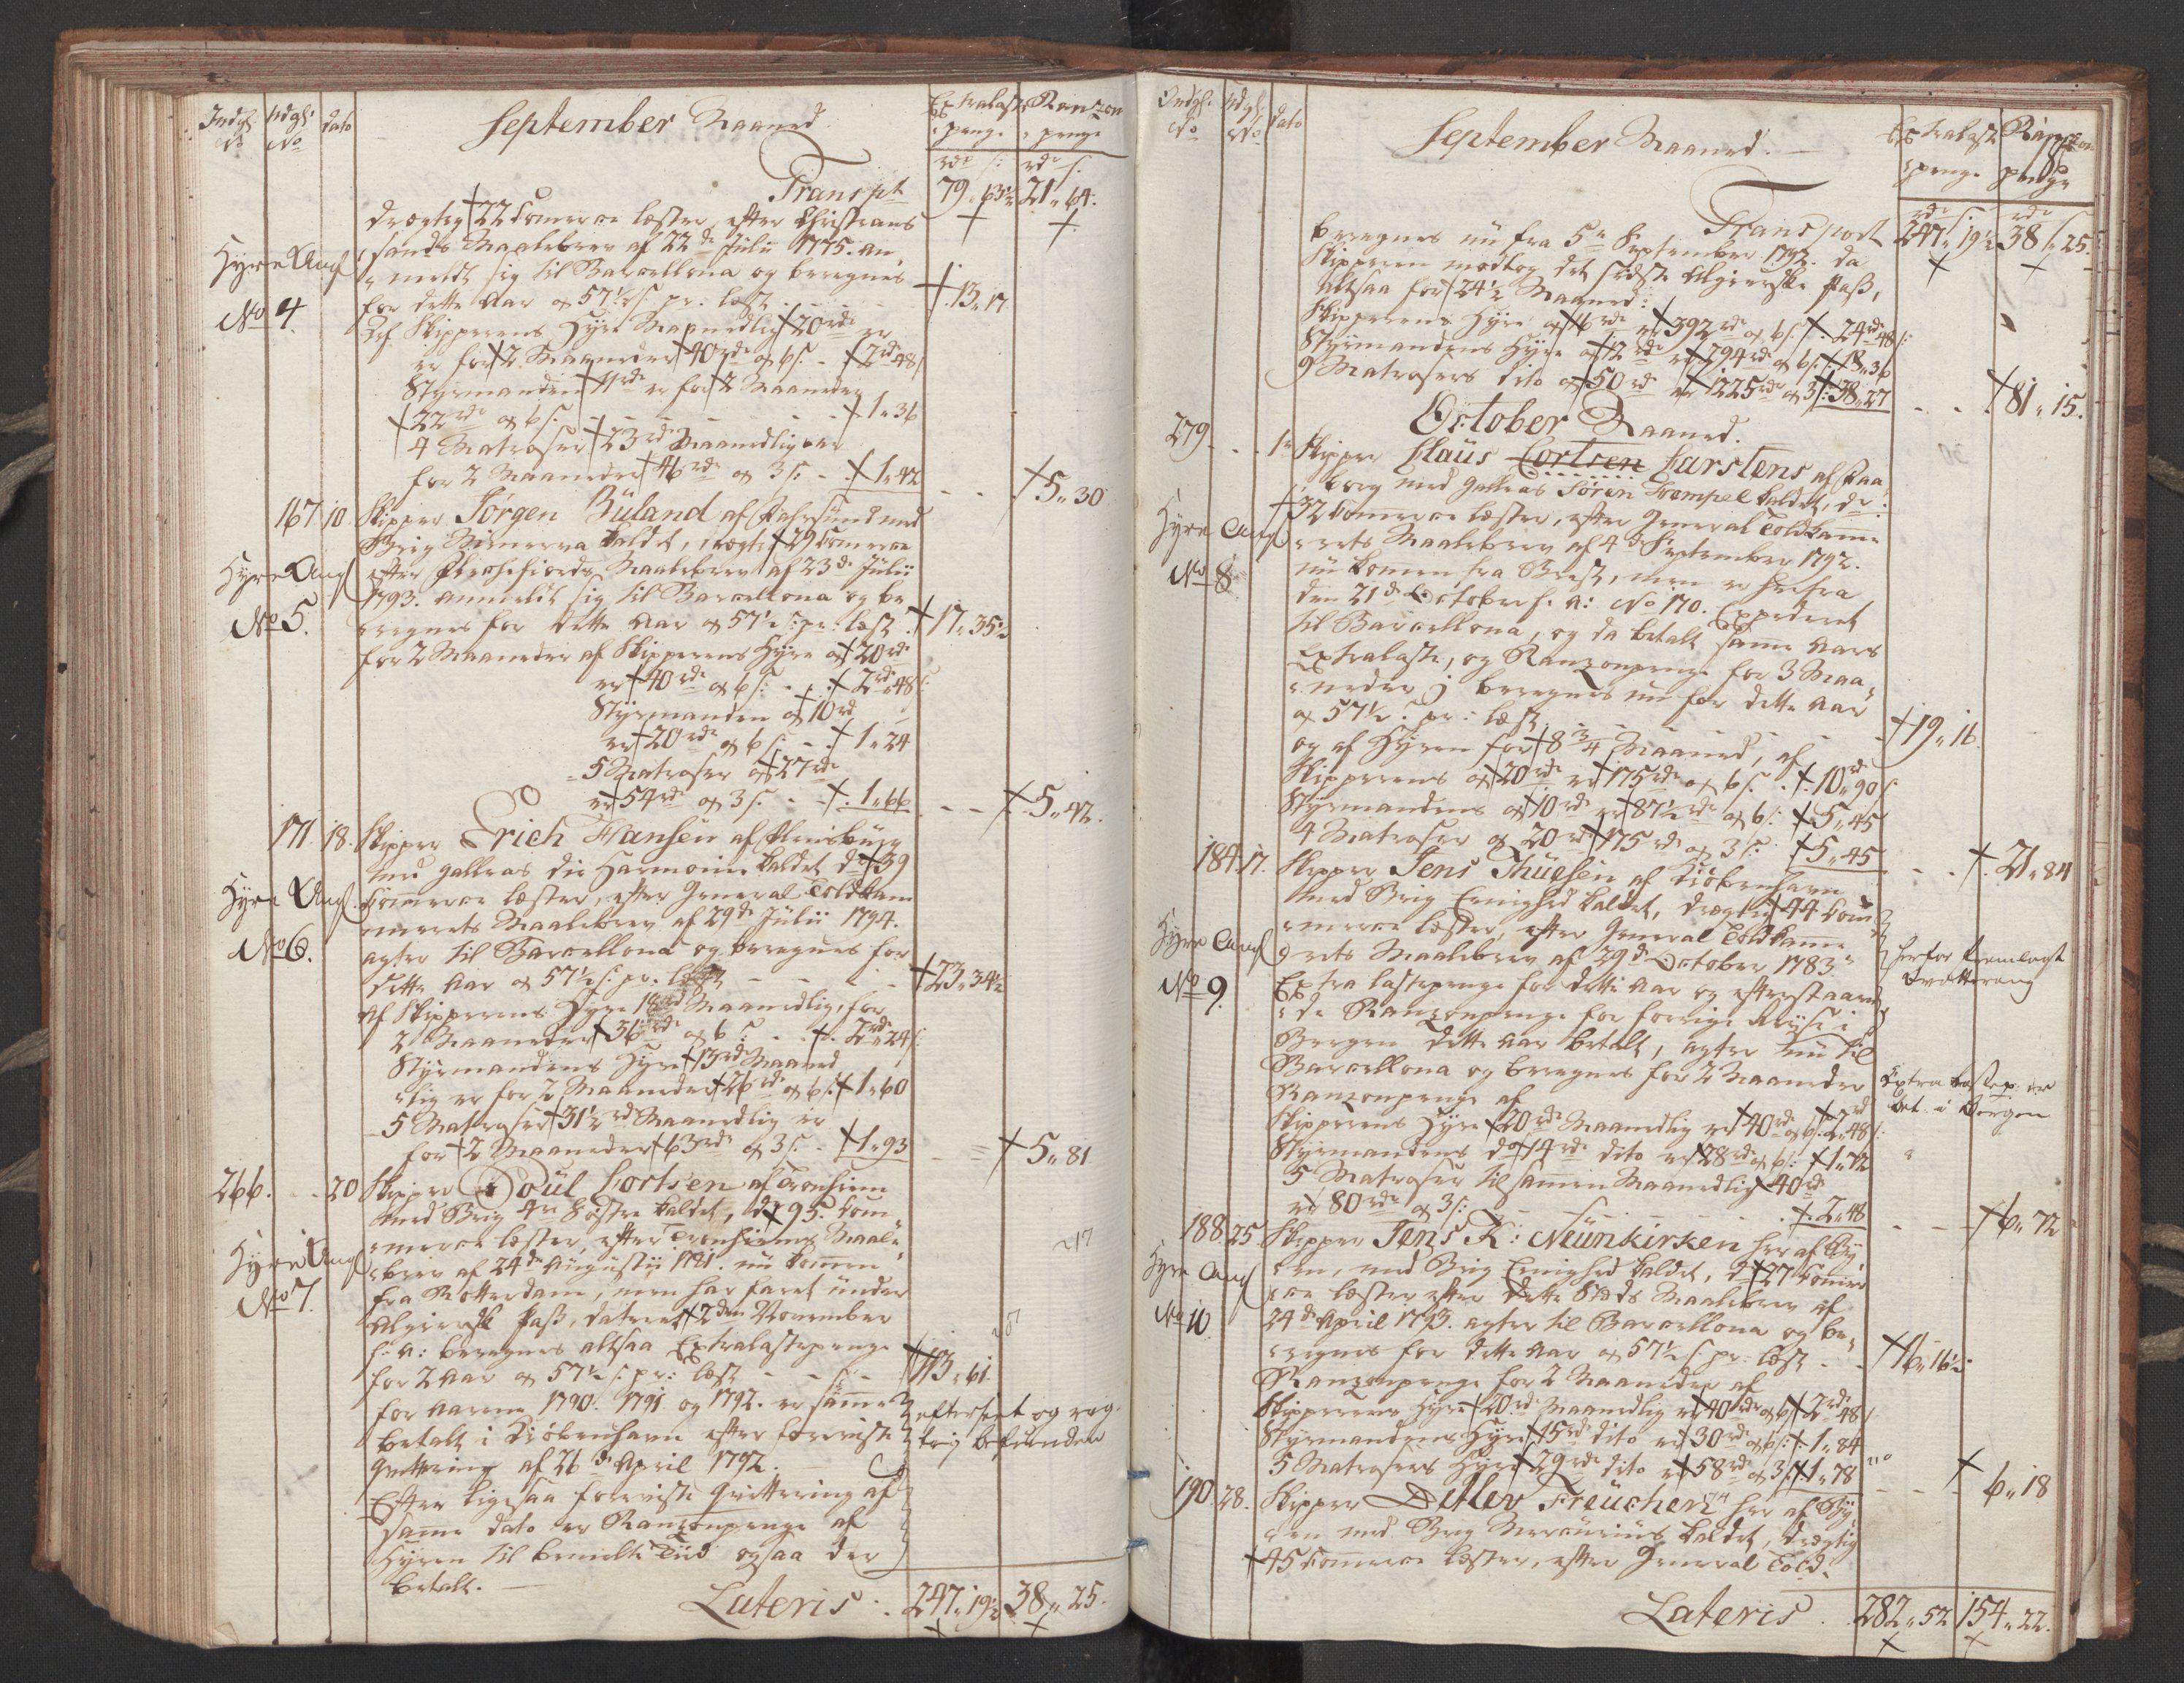 Indgl. No
Udgl. No
Dato
September Maaned
Extralaste penge
Ranzon penge
rdr s: rdr s.
Transpt 79„ 63½ 21„ 64.
drægtig 22 Comerce læster, efter Christians
sands Maalebrev af 22de Julii 1775. an,
Hyre Ang
meldt sig til Barcellona og beregnes
for dette Aar a 57½ s. pr. læst 13„ 17
No 4.
Af Skipperens Hyre Maanedlig 20 rdr
er for 2 Maaneder 40 rdr a 6 s. - 2 rdr 48 s
Styrmanden 11 rdr er for 2 Maaneder
22 rdr a 6 s. - - - 1„ 36
4 Matroser 23 rdr Maanedlig er
for 2 Maaneder 46 rdr a 3 s. - 1„ 42 - - 5„ 30
167. 10. Skipper Jørgen Büland af Fahrsund med
Brig Minerva kaldet, drægtig 29 Comerce
Hyre Ang
efter Flechefiords Maalebrev af 23de Julii
1793. anmeldt sig til Barcellona og be
No 5.
regnes for dette Aar a 57½ s: pr: læst 17„ 35½
for 2 Maaneder af Skipperens Hyre a 20 rdr
er 40 rdr a 6 s: - 2 rdr 48 s
Styrmanden a 10 rd
er 20 rdr a 6 s: - 1„ 24
5 Matroser a 27 rdr
er 54 rdr a 3 s. - - 1„ 66 - - 5„ 42.
171. 18. Skipper Erich Hansen af Flensburg
med Galleas die Harmonie kaldet dr 39
Hyre Ang.
Comerce læster, efter General Toldkam
merets Maalebrev af 29de Julii 1794.
No 6.
agter til Barcellona og beregnes for
dette Aar a 57½ s. pr. læst - - - 23„ 34½
Af Skipperens Hyre 18 rd Maanedlig, for
2 Maaneder 36 rdr a 6 s - - 2 rdr 24 s:
Styrmandens Hyre 13 rdr Maaned
lig er for 2 Maaneder 26 rdr a 6 s: 1„ 60
5 Matroser 31½ rd Maanedlig er
for 2 Maaneder 63 rdr a 3 s. - 1„ 93 - = 5„ 81
266. - - 20 Skipper Poül Lortsen af Tronhiem
med Brig 4re Søstre kaldet, dr 95. Com
merce læster, efter Tronhiems Maale
Hyre Ang
brev af 24de Augustii 1781. nu kommen
No 7.
fra Rotterdam, men har faret under
Algiersk Pass, dateret 2den November
f: A: beregnes altsaa Extralastepenge
for 2 Aar a 57½ s. pr: læst - - - 113„ 61.
for Aarene 1790. 1791 og 1792. er samme
betalt i Kiöbenhavn efter foreviste
Qvittering af 26de April 1792.
efterseet og rig
tig befunden
Efter ligesaa foreviste Qvittering af
samme dato er Ranzonpenge af
Hyren til bemelte Tiid ogsaa der
betalt. —
Lateris . 247„ 19½ 38„ 25.
Indgl. No
Udgl. No
Dato
September Maaned. —
Extralast penge
Ranzon penge
rdr s. rdr s
Transport 247„ 19½ 38„ 25.
beregnes nu fra 5te September 1792. da
Skipperen modtog det sidste Algierske Pass,
altsaa for 24½ Maaned:
Skipperens Hyre a 16 rdr er 392 rdr a 6 s. - 24 rdr 48 s:
Styrmandens Hyre a 12 rdr er 294 rdr a 6 s. 18„ 36
9 Matrosers dito a 50 rdr er 1225 rdr a 3 s: 38„ 27 - - 81„ 15.
October Maaned.
279. - - 1te Skipper Claüs Cortsen Carstens af Faa
borg med Galleas Sören Trempel kaldet, dr:
Hyre Ang
32 Commerce læster, efter General Toldkamme
rets Maalebrev af 4de September 1792.
No 8
nu kommen fra Brest, men er herfra
den 21de October f. A: No 170. Expederet
til Barcellona, og da betalt samme Aars
Extralaste, og Ranzonpenge for 3 Maa
neder; beregnes nu for dette Aar
a 57½ s. pr: læst - - - - 19„ 16.
og af Hyren for 8¾ Maaned, af
Skipperens a 20 rdr er 175 rdr a 6 s. - 10 rd 90 s
Styrmandens a 10 rdr er 87½ rdr a 6 s: 5„ 45
4 Matroser a 20 rd 175 rdr a 3 s: 5„ 45 - - 21„ 84
184. 17. Skipper Jens Thuesen af Kiöbenhavn
med Brig Enighed kaldet, drægtig 44 Com
merce læster, efter General Toldkamme
Hyre Ang
rets Maalebrev af 29de October 1783.
herfor fremlagt
Qvittering
No 9.
Extra lastepenge for dette Aar og efterstaaen
de Ranzonpenge for forrige Reyse i
Bergen dette Aar betalt, agter nu til
Barcellona og beregnes for 2 Maaneder
Ranzonpenge af
Extra lastep: er
bet. i Bergen
Skipperens Hyre 20 rdr Maanedlig er 40 rdr a 6 s. 2 rd 48 s:
Styrmandens do 14 rdr dito er 28 rdr a 6 s: 1„ 72
5 Matroser tilsammen Maanedlig 40 rdr
er 80 rdr a 3 s: - - - - 2„ 48 - - - 6„ 72
188. 25. Skipper Jens K: Münkirken her af By
en, med Brig Enighed kaldet, dr 27 Commer
Hyre Ang
ce læster efter dette Stads Maalebrev af
No 10
24de April 1793. agter til Barcellona og be
regnes for dette Aar a 57½ s pr: læst - - 16„ 16½
Ranzonpenge for 2 Maaneder af
Skipperens Hyre 20 rdr Maanedlig er 40 rdr a 6 s 2 rdr 48 s
Styrmandens Hyre 15 rdr dito er 30 rdr a 6 s: 1„ 84
5 Matrosers Hyre 29 rdr dito er 58 rdr a 3 s 1„ 78 - - 6„ 18
190. 28. Skipper Detlev Freüchen her af By
en med Brig Mercürius kaldet, drægtig
45 Commerce læster, efter General Told-
Lateris . 282„ 52 154„ 22.